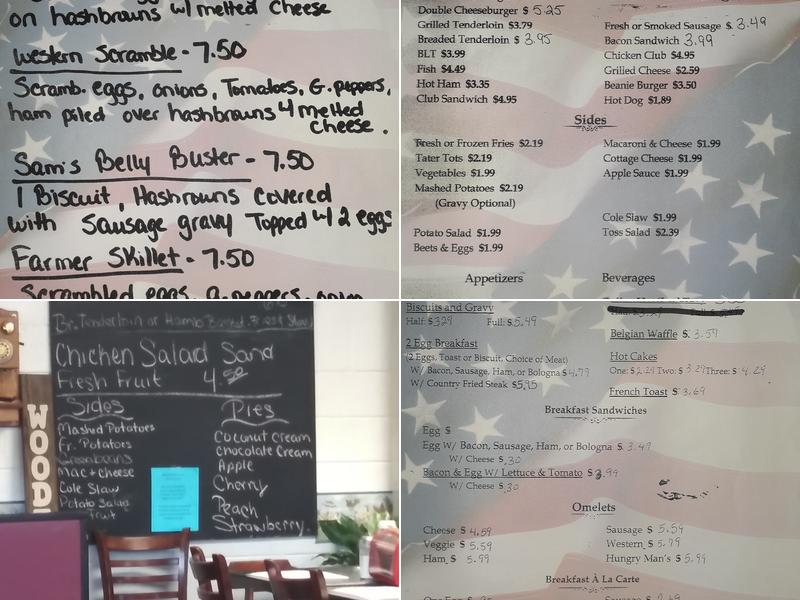 on hashbrowns w/ melted cheese
Western Scramble - 7.50
Scramb. eggs, onions, Tomatoes, G. peppers,
ham piled over hashbrowns w/ melted
cheese.
Sam's Belly Buster - 7.50
1 Biscuit, Hashrowns covered
with Sausage gravy Topped w/ 2 eggs
Farmer Skillet - 7.50
Scrambled eggs, G. peppers, onion
Double Cheeseburger $ 5.25
Grilled Tenderloin $3.79
Breaded Tenderloin $ 3.95
BLT $3.99
Fish $4.49
Hot Ham $3.35
Club Sandwich $4.95
Fresh or Smoked Sausage $ 3.49
Bacon Sandwich 3.99
Chicken Club $4.95
Grilled Cheese $2.59
Beanie Burger $3.50
Hot Dog $1.89
Sides
Fresh or Frozen Fries $2.19
Tater Tots $2.19
Vegetables $1.99
Mashed Potatoes $2.19
(Gravy Optional)
Potato Salad $1.99
Beets & Eggs $1.99
Macaroni & Cheese $1.99
Cottage Cheese $1.99
Apple Sauce $1.99
Cole Slaw $1.99
Toss Salad $2.39
Appetizers
Beverages
Br. Tenderloin or
Chicken Salad Sand
Fresh Fruit 4.50
Sides
Mashed Potatoes
Fr. Potatoes
Greenbeans
Mac + Cheese
Cole Slaw
Potato Salad
Fruit
Pies
Coconut Cream
Chocolate Cream
Apple
Cherry
Peach
Strawberry.
WOOD
Biscuits and Gravy
Half: $3.29 Full: $5.49
2 Egg Breakfast
(2 Eggs, Toast or Biscuit, Choice of Meat)
W/ Bacon, Sausage, Ham, or Bologna $4.79
W/ Country Fried Steak $5.95
Belgian Waffle $ 3.59
Hot Cakes
One: $2.29 Two: $ 3.29 Three: $ 4.29
French Toast $ 3.69
Breakfast Sandwiches
Egg $
Egg W/ Bacon, Sausage, Ham, or Bologna $ 3.49
W/ Cheese $ .30
Bacon & Egg W/ Lettuce & Tomato $ 3.99
W/ Cheese $ .30
Omelets
Cheese $ 4.59
Veggie $ 5.59
Ham $ 5.99
Sausage $ 5.59
Western $ 5.79
Hungry Man's $ 5.99
Breakfast À La Carte